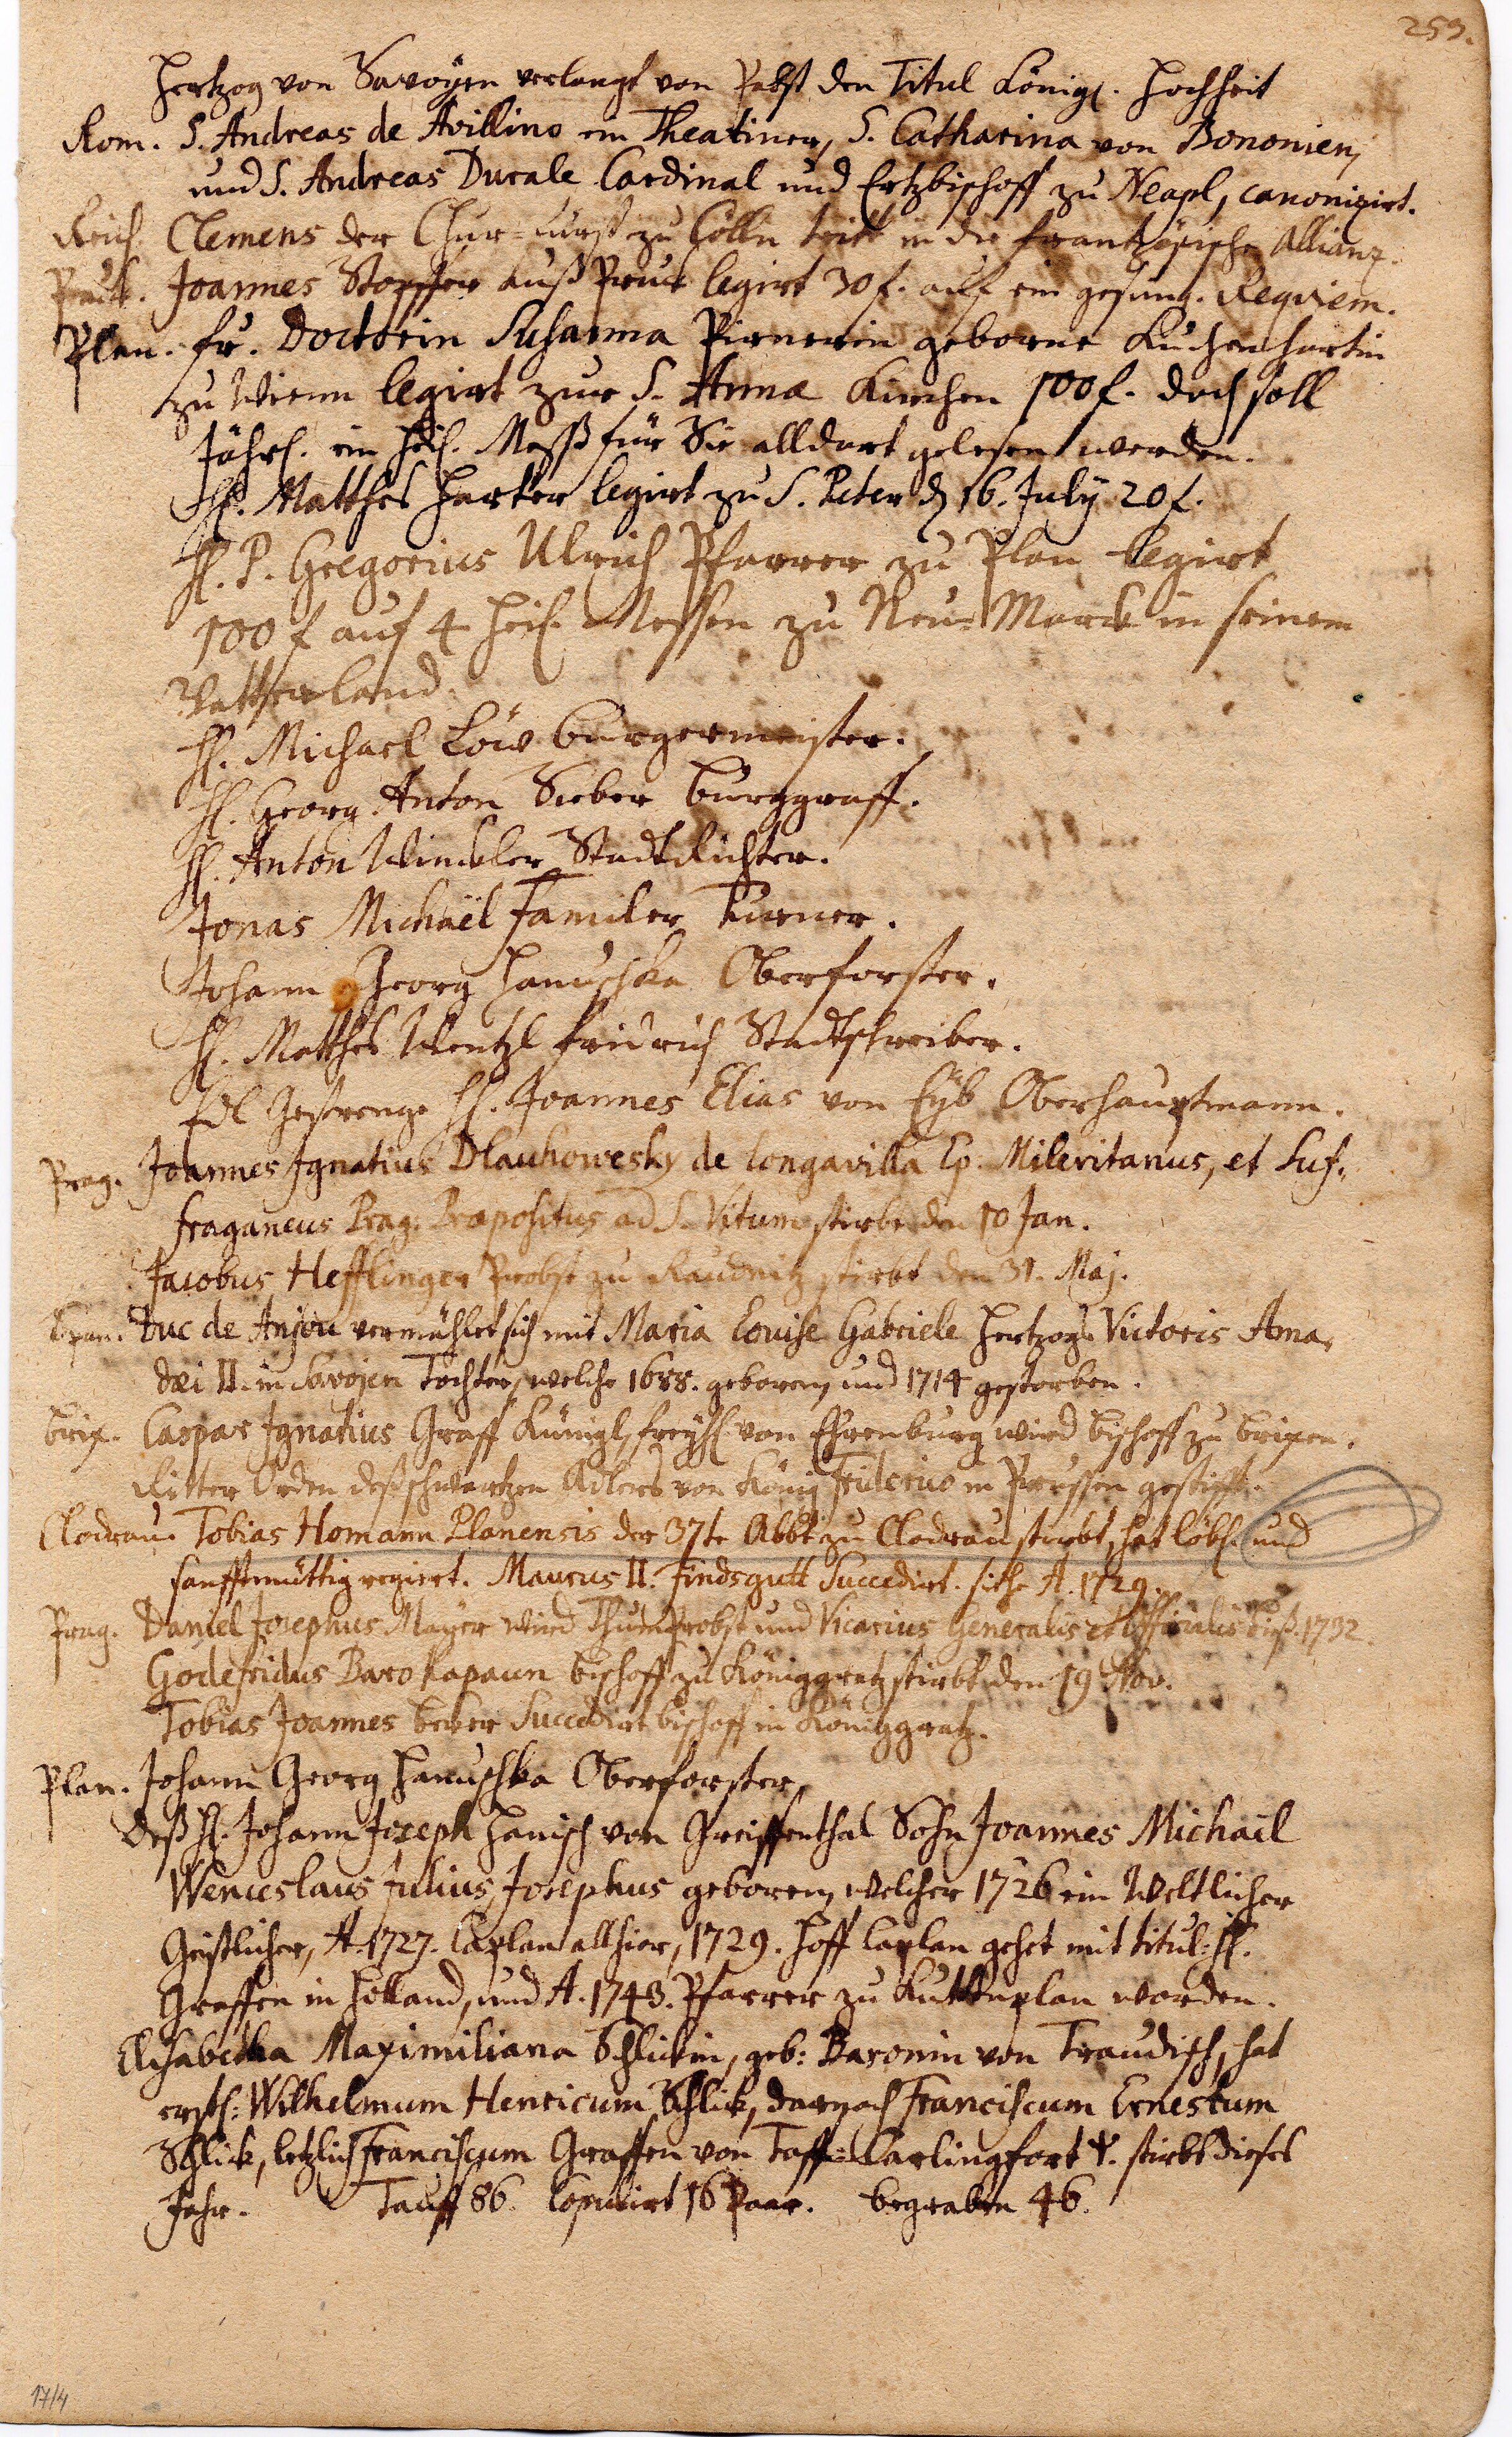 259.
Hertzog von Savoyen verlangt von Pabst den Titul Königl. Hochheit
Rom. S. Andreas de Avillino ein Theatiner, S. Catharina von Bononien,
und S. Andreas Durale Cardinal und Ertzbischoff zu Neapl, canonizirt.
Reich. Clemens der Chur-Fürst zu Cölln tritt in die frantzösische Allianz.
Joannes Stopffer auß legirt 30 f. auf ein gesung. Reqviem.
Plan. Fr. Doctorin Susanna Pirnerin geborne Kuchenhartin
zu Wienn legirt zur S. Anna Kirchen 100 f. doch soll
Jährl. ein heil. Mess für Sie alldort gelesen werden.
H. Matthes Harter legirt zu S. Peter d. 16. July 20 f.
H. P. Gregorius Ulrich Pfarrer zu Plan legirt
100 f auf 4 heil. Messen zu Neu-Marck in seinem
Vatterland.
H. Michael Löw burgermeister.
H. Georg Anton Sieber burggraff.
H. Anton Winckler StadtRichter.
Jonas Michaël Familer Turner.
Johann Georg Hanuschka Oberforster.
H. Matthes Wentzl Fridrich Stadtschreiber.
Edl Gestrenge H. Joannes Elias von Eÿb Oberhauptmann.
Prag. Joannes Ignatius Dlauhowesky de Longavilla Ep. Milevitanus, et Suf-
fraganeus Prag. Præpositus ad S. Vitum stirbt den 10 Jan.
Jacobus Hefflinger Probst zu Raudnitz stirbt den 31. Maj.
Span. Duc de Anjou vermählet sich mit Maria Louise Gabriele Hertzogs Victoris Ama-
dæi II. in Savojen Tochter, welche 1688. geboren, und 1714 gestorben.
Brix. Caspar Ignatius Graff Künigl, freyh. von Ehrenburg wird bischoff zu brixen.
Ritter Orden deß schwartzen Adlers von König Friderico in Preussen gestifft.
Clodrau. Tobias Homann Planensis der 37te Abbt zu Clodrau stirbt, hat löbl. und
sanfftmüttig regiert. Maurus II. Findsgutt Succedirt. siehe A. 1729.
Prag. Daniel Josephus Mayer wird Thumprobst und Vicarius Generalis et Officialis biß. 1732.
Godefridus Baro Kapaun bischoff zu Königgratz stirbt den 19 Nov.
Tobias Joannes beker Succedirt bischoff in Königgratz.
Plan. Johann Georg Hanuschka Oberforster.
Deß H. Johann Joseph Hanisch von Greiffenthal Sohn Joannes Michaël
Wenceslaus Julius Josephus geboren, welcher 1726 ein Weltlicher
Geistlicher, A. 1727. Caplan allhier, 1729. Hoff Caplan gehet mit titul: H.
Graffen in Holland, und A. 1743. Pfarrer zu Kuttnplan worden.
Elisabetha Maximiliana Schlickin, geb: Baronin von Traudisch, hat
erstl: Wilhelmum Henricum Schlick, darnach Franciscum Ernestum
Schlick, letzlich Franciscum Graffen von Taff-Carlingfort stirbt dieses
Jahr. Tauff 86. Copulirt 16 Paar. begraben 46.
17/4